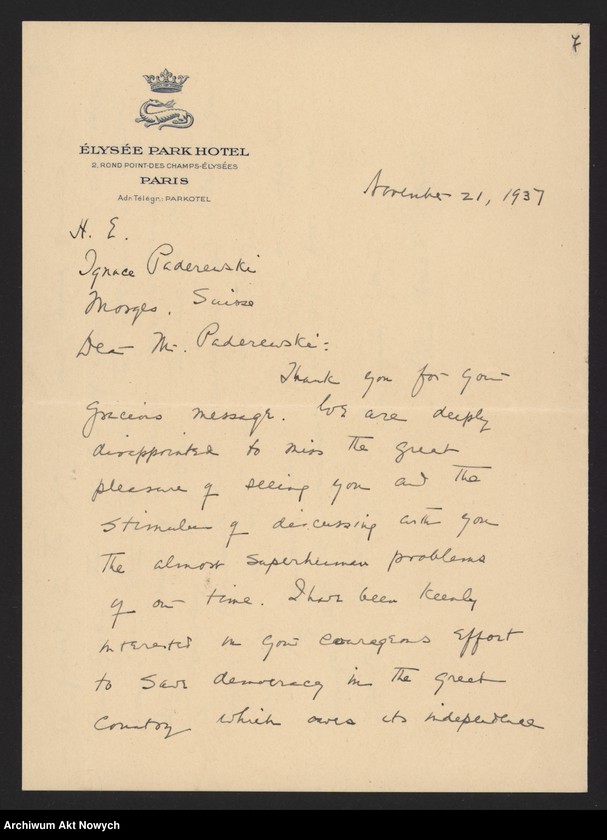 7
ÉLYSÉE PARK HOTEL
2, ROND POINT-DES CHAMPS-ÉLYSÉES
PARIS
Adr. Télégr.: PARKOTEL
November 21, 1937
H. E.
Ignace Paderewski
Morges, Suisse
Dear Mr. Paderewski:
Thank you for your
gracious message. We are deeply
disappointed to miss the great
pleasure of seeing you and the
stimulus of discussing with you
the almost superhuman problems
of our time. I have been keenly
interested in your courageous effort
to save democracy in the great
country which owes its independence
Archiwum Akt Nowych